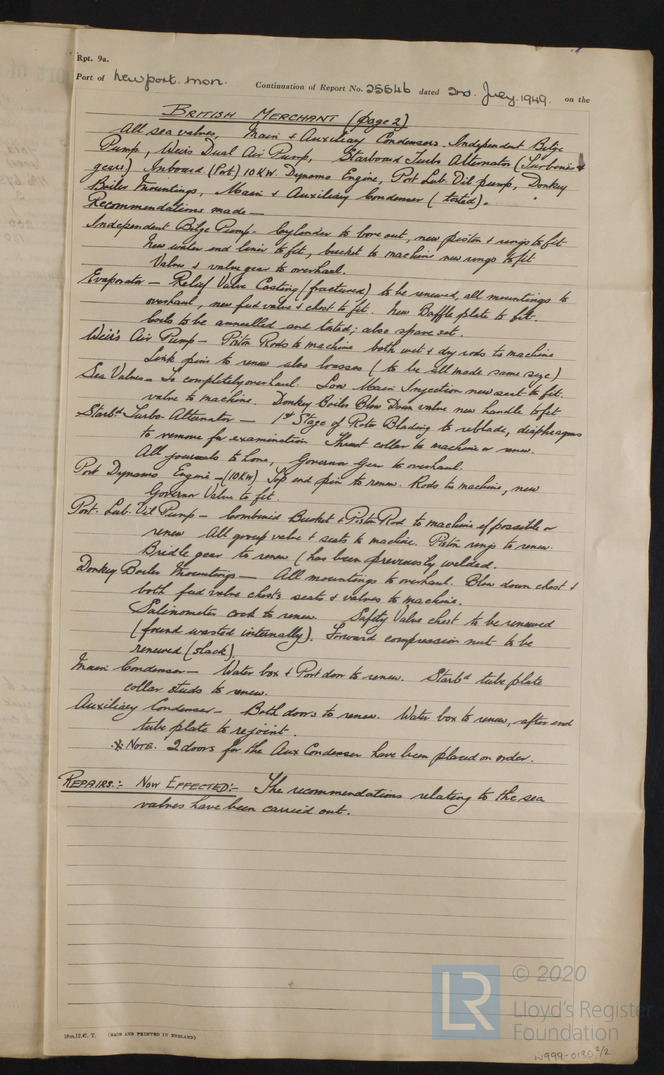 Rpt. 9a.
Port of Newport. Mon. Continuation of Report No. 25546 dated 2nd. July. 1949. on the
BRITISH MERCHANT (page 2)
All sea valves, Main & Auxiliary Condensers. Independent Bilge
Pump, Weirs Dual Air Pump, Starboard Turbo Alternator (Turbine &
gears) Inboard (Port) 10 KW Dynamo Engine, Port Lub. Oil pump, Donkey
Boiler Mountings, Main & Auxiliary Condenser (tested).
Recommendations made —
Independent Bilge Pump. Cylinder to bore out, new piston & rings to fit
New water end liner to fit, bucket to machine new rings to fit
Valve & valve gear to overhaul.
Evaporator — Relief Valve Casting (fractured) to be renewed, all mountings to
overhaul, new feed valve & chest to fit. New Baffle plate to fit.
Coils to be annealled and tested; also spare set.
Weir's Air Pump — Piston Rods to machine both wet & dry rods to machine
Link pins to renew also brasses (to be all made same size)
Sea Valves — To completely overhaul. Low Main Injection new seat to fit.
valve to machine. Donkey Boiler Blow Down valve new handle to fit
Starbd Turbo Alternator — 1st Stage of Rotor Blading to reblade, diaphragms
to remove for examination Thrust collar to machine or renew.
All journals to hone, Governor Gear to overhaul.
Port Dynamo Engine — (10KW) Top end pin to renew. Rods to machine, new
Governor Valve to fit.
Port. Lub. Oil Pump — Combined Bucket & Piston Rod to machine if possible or
renew All group valve & seats to machine. Piston rings to renew.
Bridle gear to renew (has been previously welded.
Donkey Boiler Mountings — All mountings to overhaul. Blow down chest &
both feed valve chests seats & valves to machine.
Salinometer cock to renew. Safety Valve chest to be renewed
(found wasted internally). Forward compression nut to be
renewed (slack).
Main Condenser — Water box & Port door to renew. Starbd tube plate
collar studs to renew.
Auxiliary Condenser — Both doors to renew. Water box to renew, after end
tube plate to rejoint.
* NOTE. 2 doors for the Aux Condenser have been placed on order.
REPAIRS:- NOW EFFECTED:- The recommendations relating to the sea
valves have been carried out.
(MADE AND PRINTED IN ENGLAND)
LR
© 2020
Lloyd's Register
Foundation
W999-0130 2/2